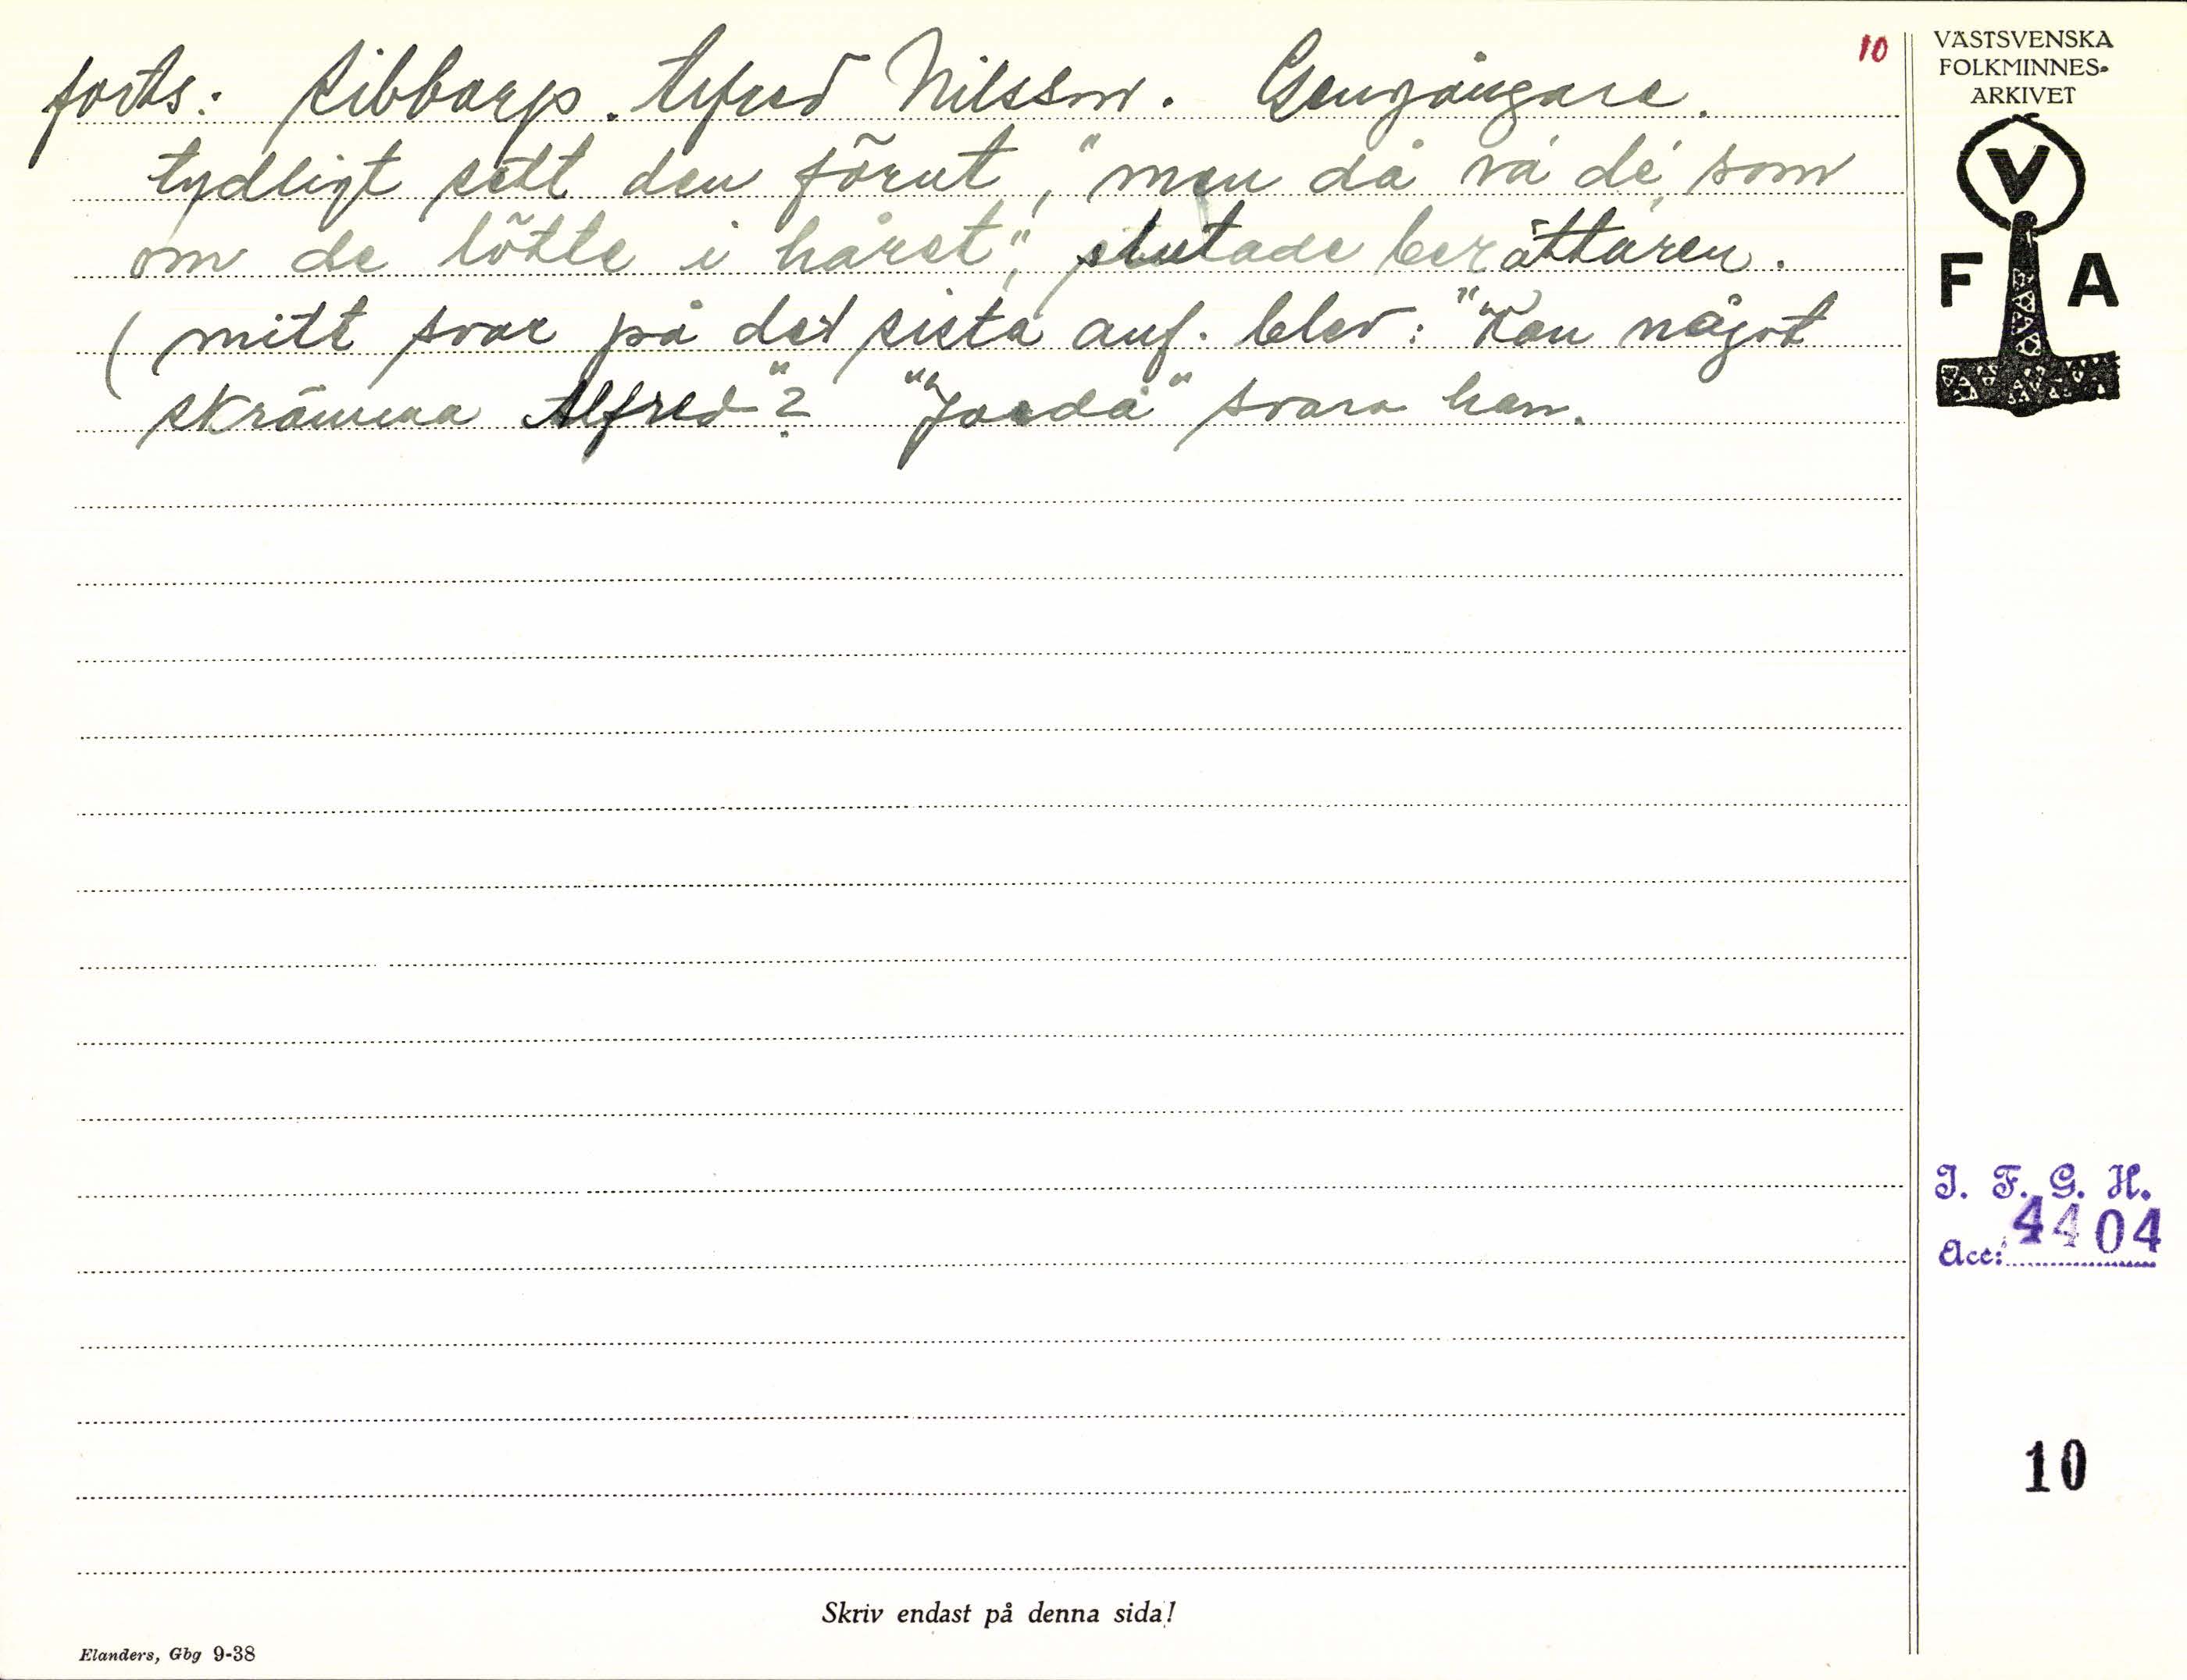 10
forts: Sibbarp. Alfred Nilsson. Gengångare.
tydligt sett den förut, "men då va de' som
om de lötte i håret", slutade berättaren.
(mitt svar på det sista anf. blev: "Kan något
skrämma Alfred"? "Joedå" svara han.
VÄSTSVENSKA
FOLKMINNES-
ARKIVET
V
F A
I. F. G. H.
Acc: 4404
10
Skriv endast på denna sida!
Elanders, Gbg 9-38